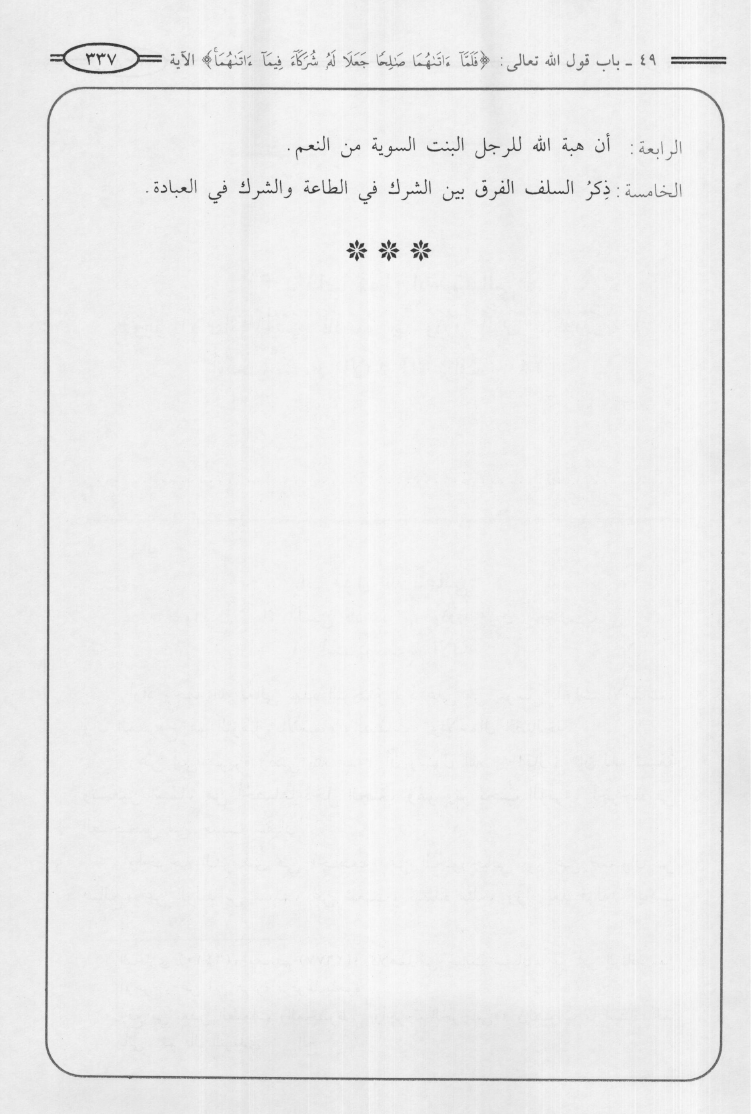 ٤٩ ـ باب قول الله تعالى: ﴿فَلَمَّآ ءَاتَىٰهُمَا صَٰلِحًا جَعَلَا لَهُۥ شُرَكَآءَ فِيمَآ ءَاتَىٰهُمَاۚ﴾ الآية ٣٣٧
الرابعة: أن هبة الله للرجل البنت السوية من النعم.
الخامسة: ذِكرُ السلف الفرق بين الشرك في الطاعة والشرك في العبادة.